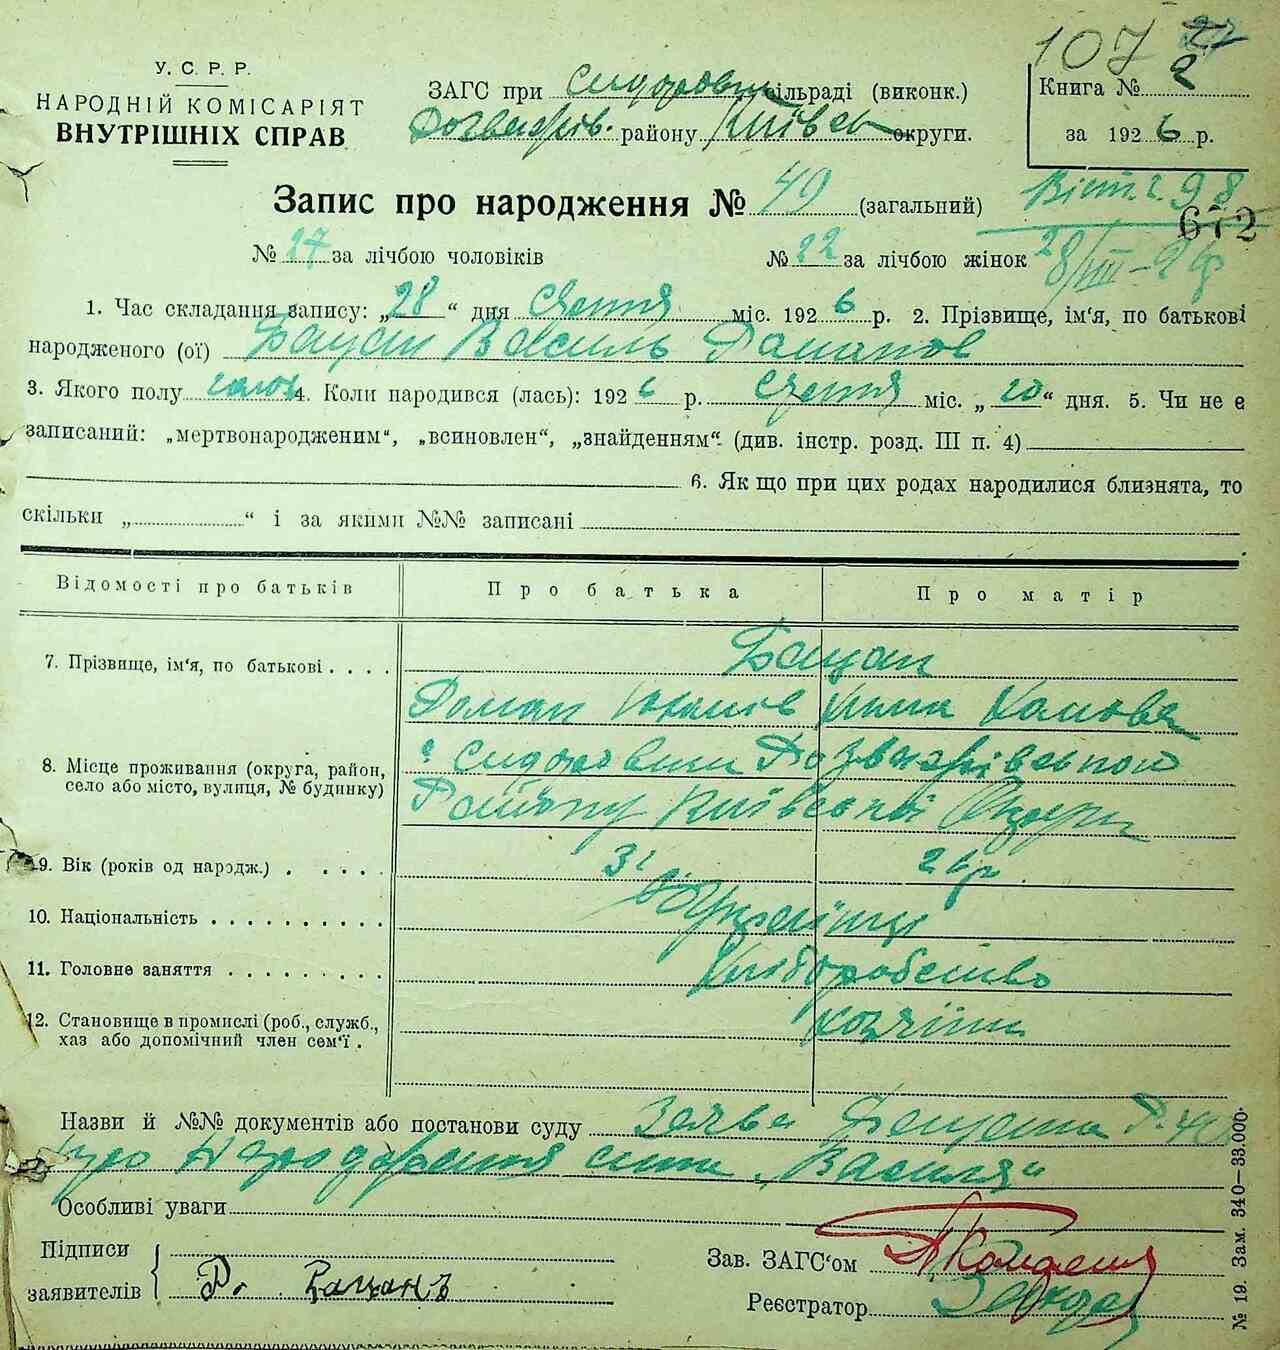 107
У. С. Р. Р.
НАРОДНІЙ КОМІСАРІЯТ
ВНУТРІШНІХ СПРАВ
ЗАГС при Сидоровській сільраді (виконк.)
району Київськ округи.
Книга № 2
за 1926 р.
Запис про народження № 49 (загальний)
672
№ 27 за лічбою чоловіків № 22 за лічбою жінок 28/VIII-26р
1. Час складання запису: „28“ дня Серпня міс. 1926 р. 2. Прізвище, ім‘я, по батькові
народженого (ої) Бацан Василь Романов
3. Якого полу чолов 4. Коли народився (лась): 1926 р. Серпня міс. „20“ дня. 5. Чи не є
записаний: „мертвонародженим“, „всиновлен“, „знайденням“ (див. інстр. розд. III п. 4)
6. Як що при цих родах народилися близнята, то
скільки „ “ і за якими №№ записані
Відомості про батьків Про батька Про матір
7. Прізвище, ім‘я, по батькові . . . . Бацан
Роман
8. Місце проживання (округа, район,
село або місто, вулиця, № будинку)
Району Київської Округи
9. Вік (років од народж.) . . . . . 31 26р
10. Національність . . . . . . . . . . Українці
11. Головне заняття . . . . . . . . . Хліборобство
12. Становище в промислі (роб., служб.,
хаз або допомічний член сем‘ї .
Назви й №№ документів або постанови суду Заява Бацана
про Народження сина „Василя“
Особливі уваги
Підписи
заявителів Р. Бацанъ
Зав. ЗАГС‘ом
Реєстратор
№ 19. Зам. 340—33.000.